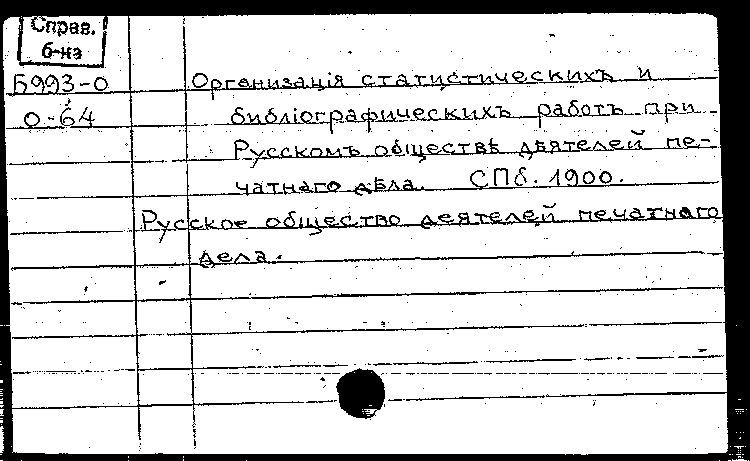 Справ.
б-на
Б993-0
О-64
Организація статистическихъ и
библіографическихъ работъ при
Русскомъ обществѣ дѣятелей пе-
чатнаго дѣла. СПб. 1900.
Русское общество деятелей печатного
дела.